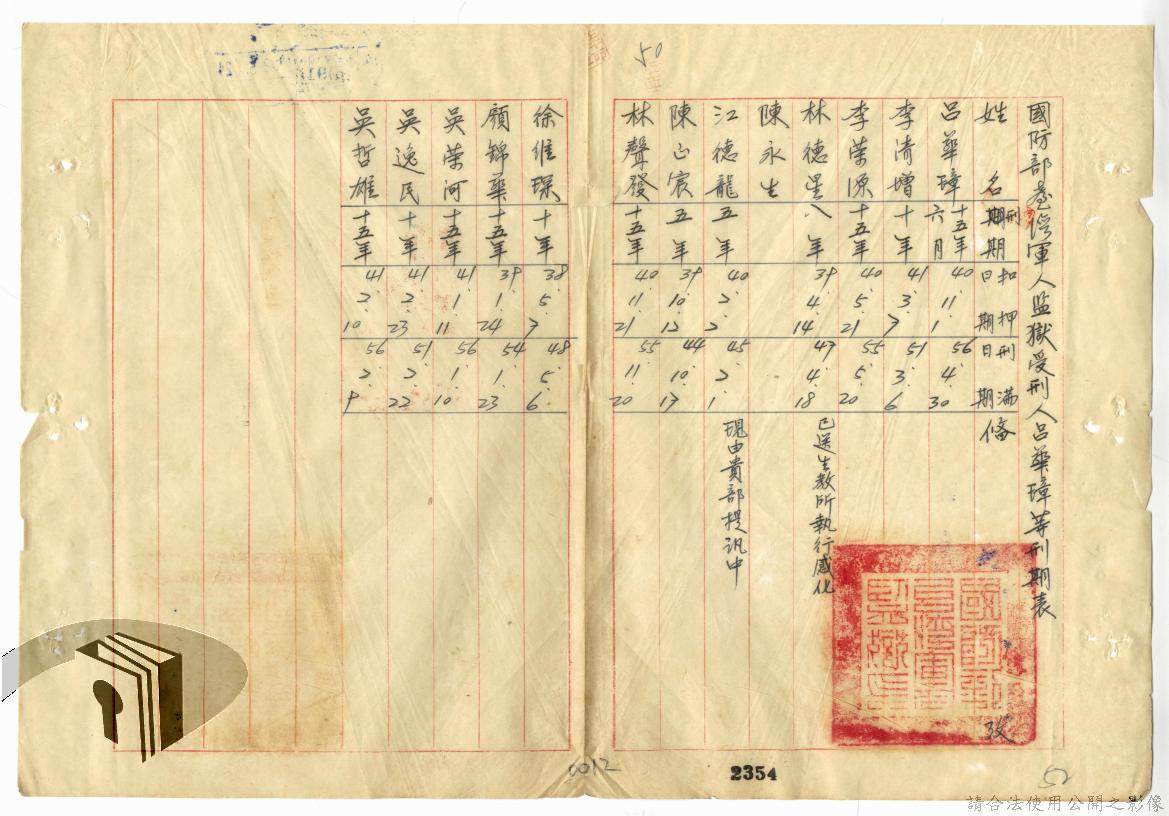 國防部臺灣軍人監獄受刑人呂華璋等刑期表
姓名 刑期 扣押日期 刑滿日期 備攷
呂華璋 十五年六月 40.11.1 56.4.30
李清增 十年 41.3.7 51.3.6
李荣源 十五年 40.5.21 55.5.20
林德星 八年 39.4.14 47.4.18 已送生教所執行感化
陳永生
江德龍 五年 40.2.2 45.2.1 現由貴部提訊中
陳正宸 五年 39.10.12 44.10.17
林聲發 十五年 40.11.21 55.11.20
徐維琛 十年 38.5.7 48.5.6
顏錦華 十五年 39.1.24 54.1.23
吳荣河 十五年 41.1.11 56.1.10
吳逸民 十年 41.2.23 51.2.22
吳哲雄 十五年 41.2.10 56.2.9
50
0012
2354
52
請合法使用公開之影像